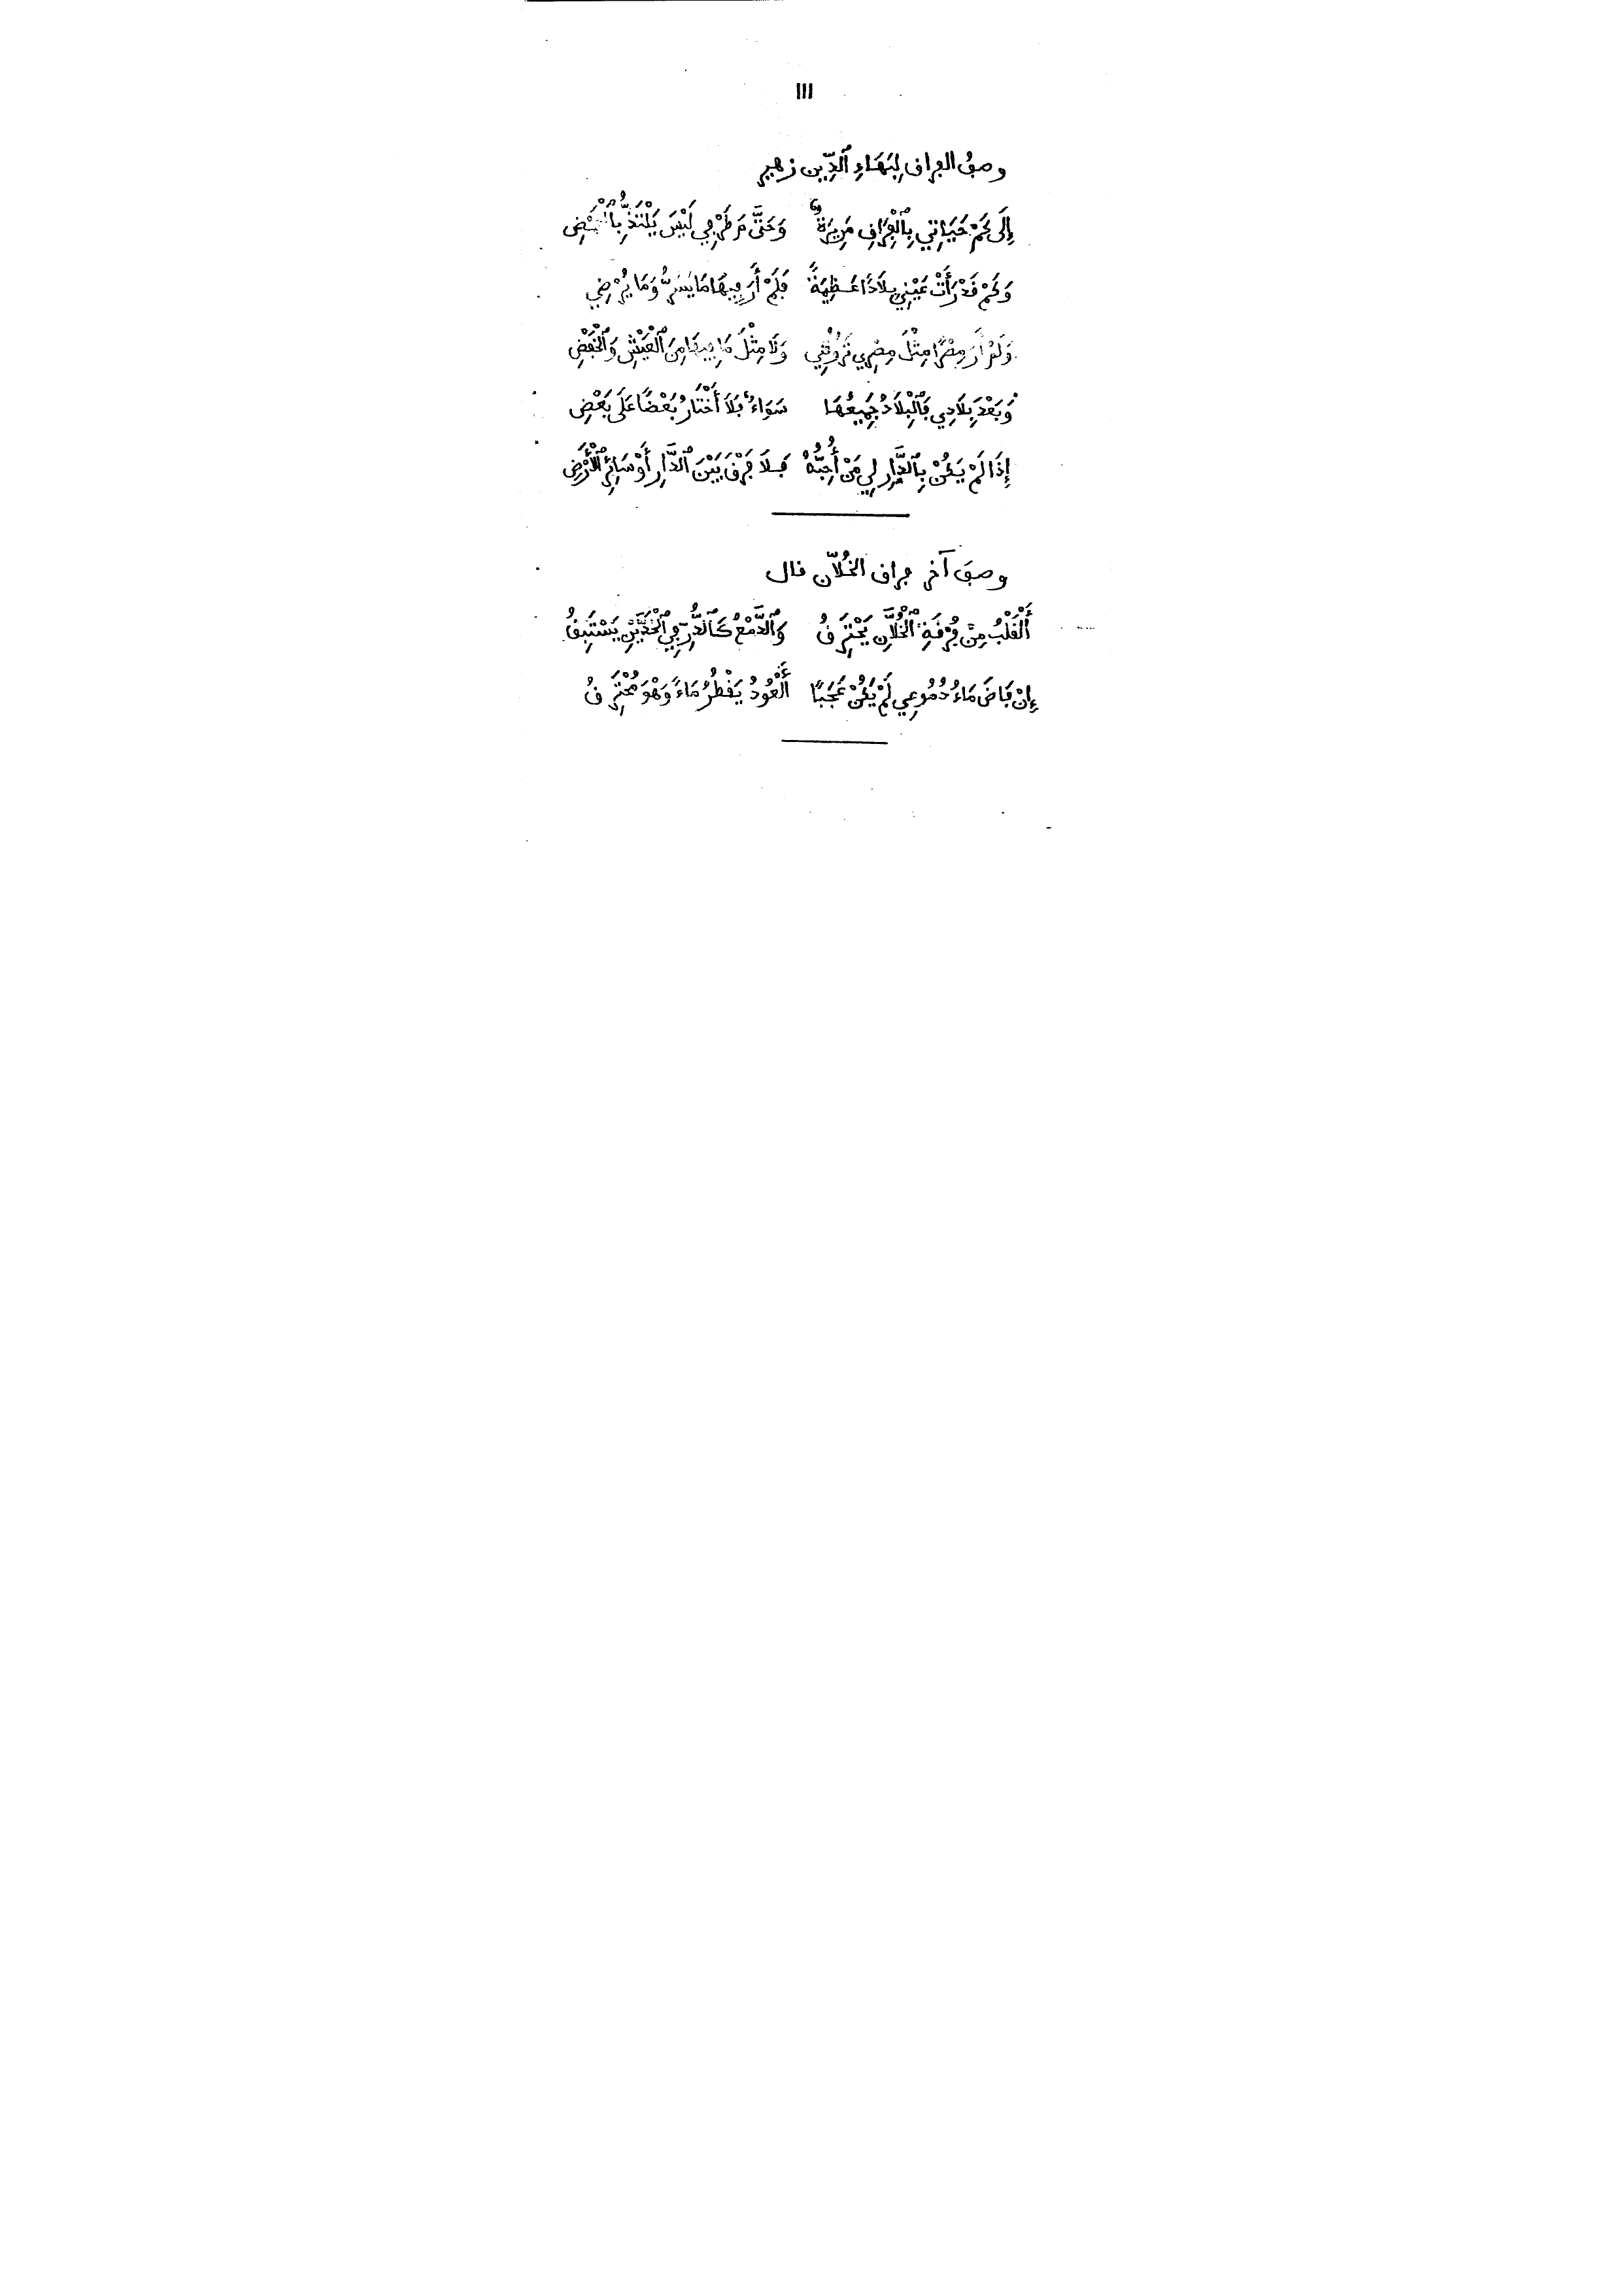 111
وصف الفراق لِبَهَاءِ ٱلدِّين زهير
إِلَى كَمْ حَيَاتِي بِٱلْفِرَاقِ مَرِيرَةٌ وَحَتَّى مَ طَرْفِي لَيْسَ يَلْتَذُّ بِٱلْغَمْضِ
وَكَمْ قَدْ رَأَتْ عَيْنِي بِلَادًا عَظِيمَةً فَلَمْ أَرَ فِيهَا مَا يَسُرُّ وَمَا يُرْضِي
وَلَمْ أَرَ مِصْرًا مِثْلَ مِصْرِي تَرُوقُنِي وَلَا مِثْلَ مَا فِيهَا مِنَ ٱلْعَيْشِ وَٱلْخَفْضِ
وَبَعْدَ بِلَادِي فَٱلْبِلَادُ جَمِيعُهَا سَوَاءٌ فَلَا أَخْتَارُ بَعْضًا عَلَى بَعْضِ
إِذَا لَمْ يَكُنْ بِٱلدَّارِ لِي مَنْ أُحِبُّهُ فَلَا فَرْقَ بَيْنَ ٱلدَّارِ أَوْ سَائِرِ ٱلْأَرْضِ
وصف آخر فراق الخُلاّن قال
أَلْقَلْبُ مِنْ فُرْقَةِ ٱلْخُلَّانِ يَحْتَرِقُ وَٱلدَّمْعُ كَٱلدُّرِّ فِي ٱلْخَدَّيْنِ يَسْتَبِقُ
إِنْ فَاضَ مَاءُ دُمُوعِي لَمْ يَكُنْ عَجَبًا أَلْعُودُ يَقْطُرُ مَاءً وَهْوَ مُحْتَرِقُ